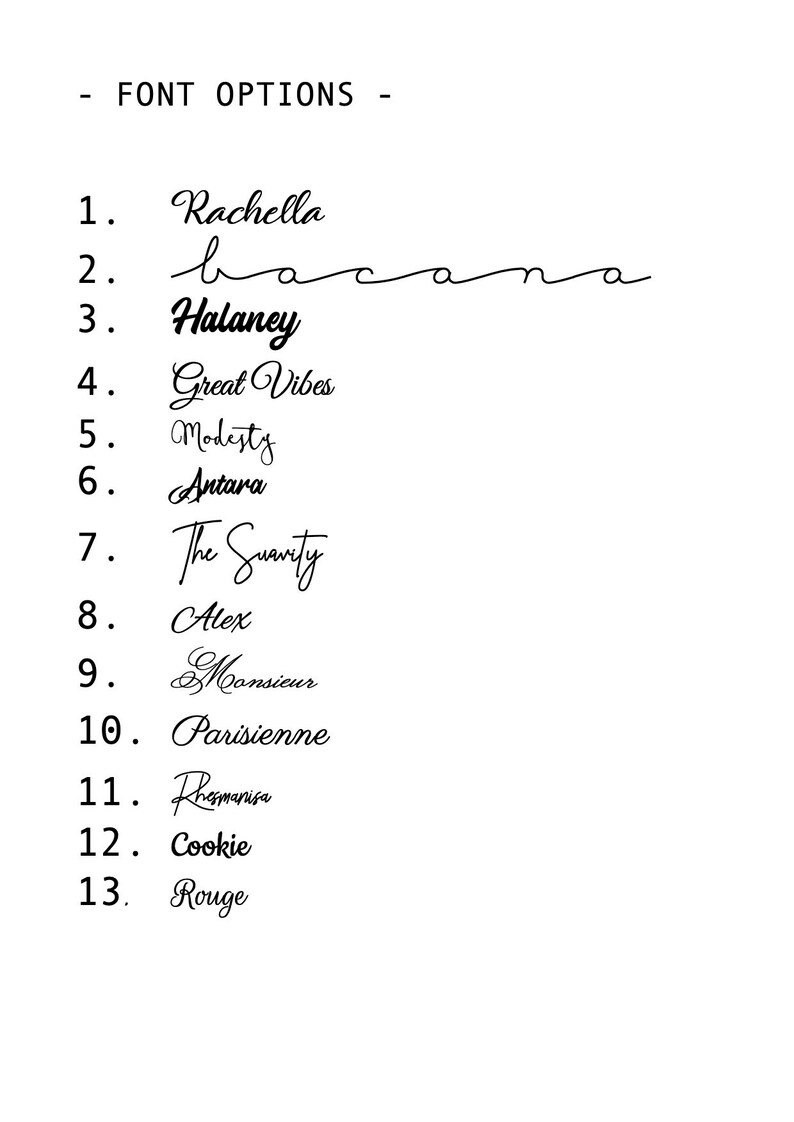 - FONT OPTIONS -
1. Rachella
2. bacana
3. Halaney
4. Great Vibes
5. Modesty
6. Antara
7. The Suavity
8. Alex
9. Monsieur
10. Parisienne
11. Rhesmanisa
12. Cookie
13. Rouge